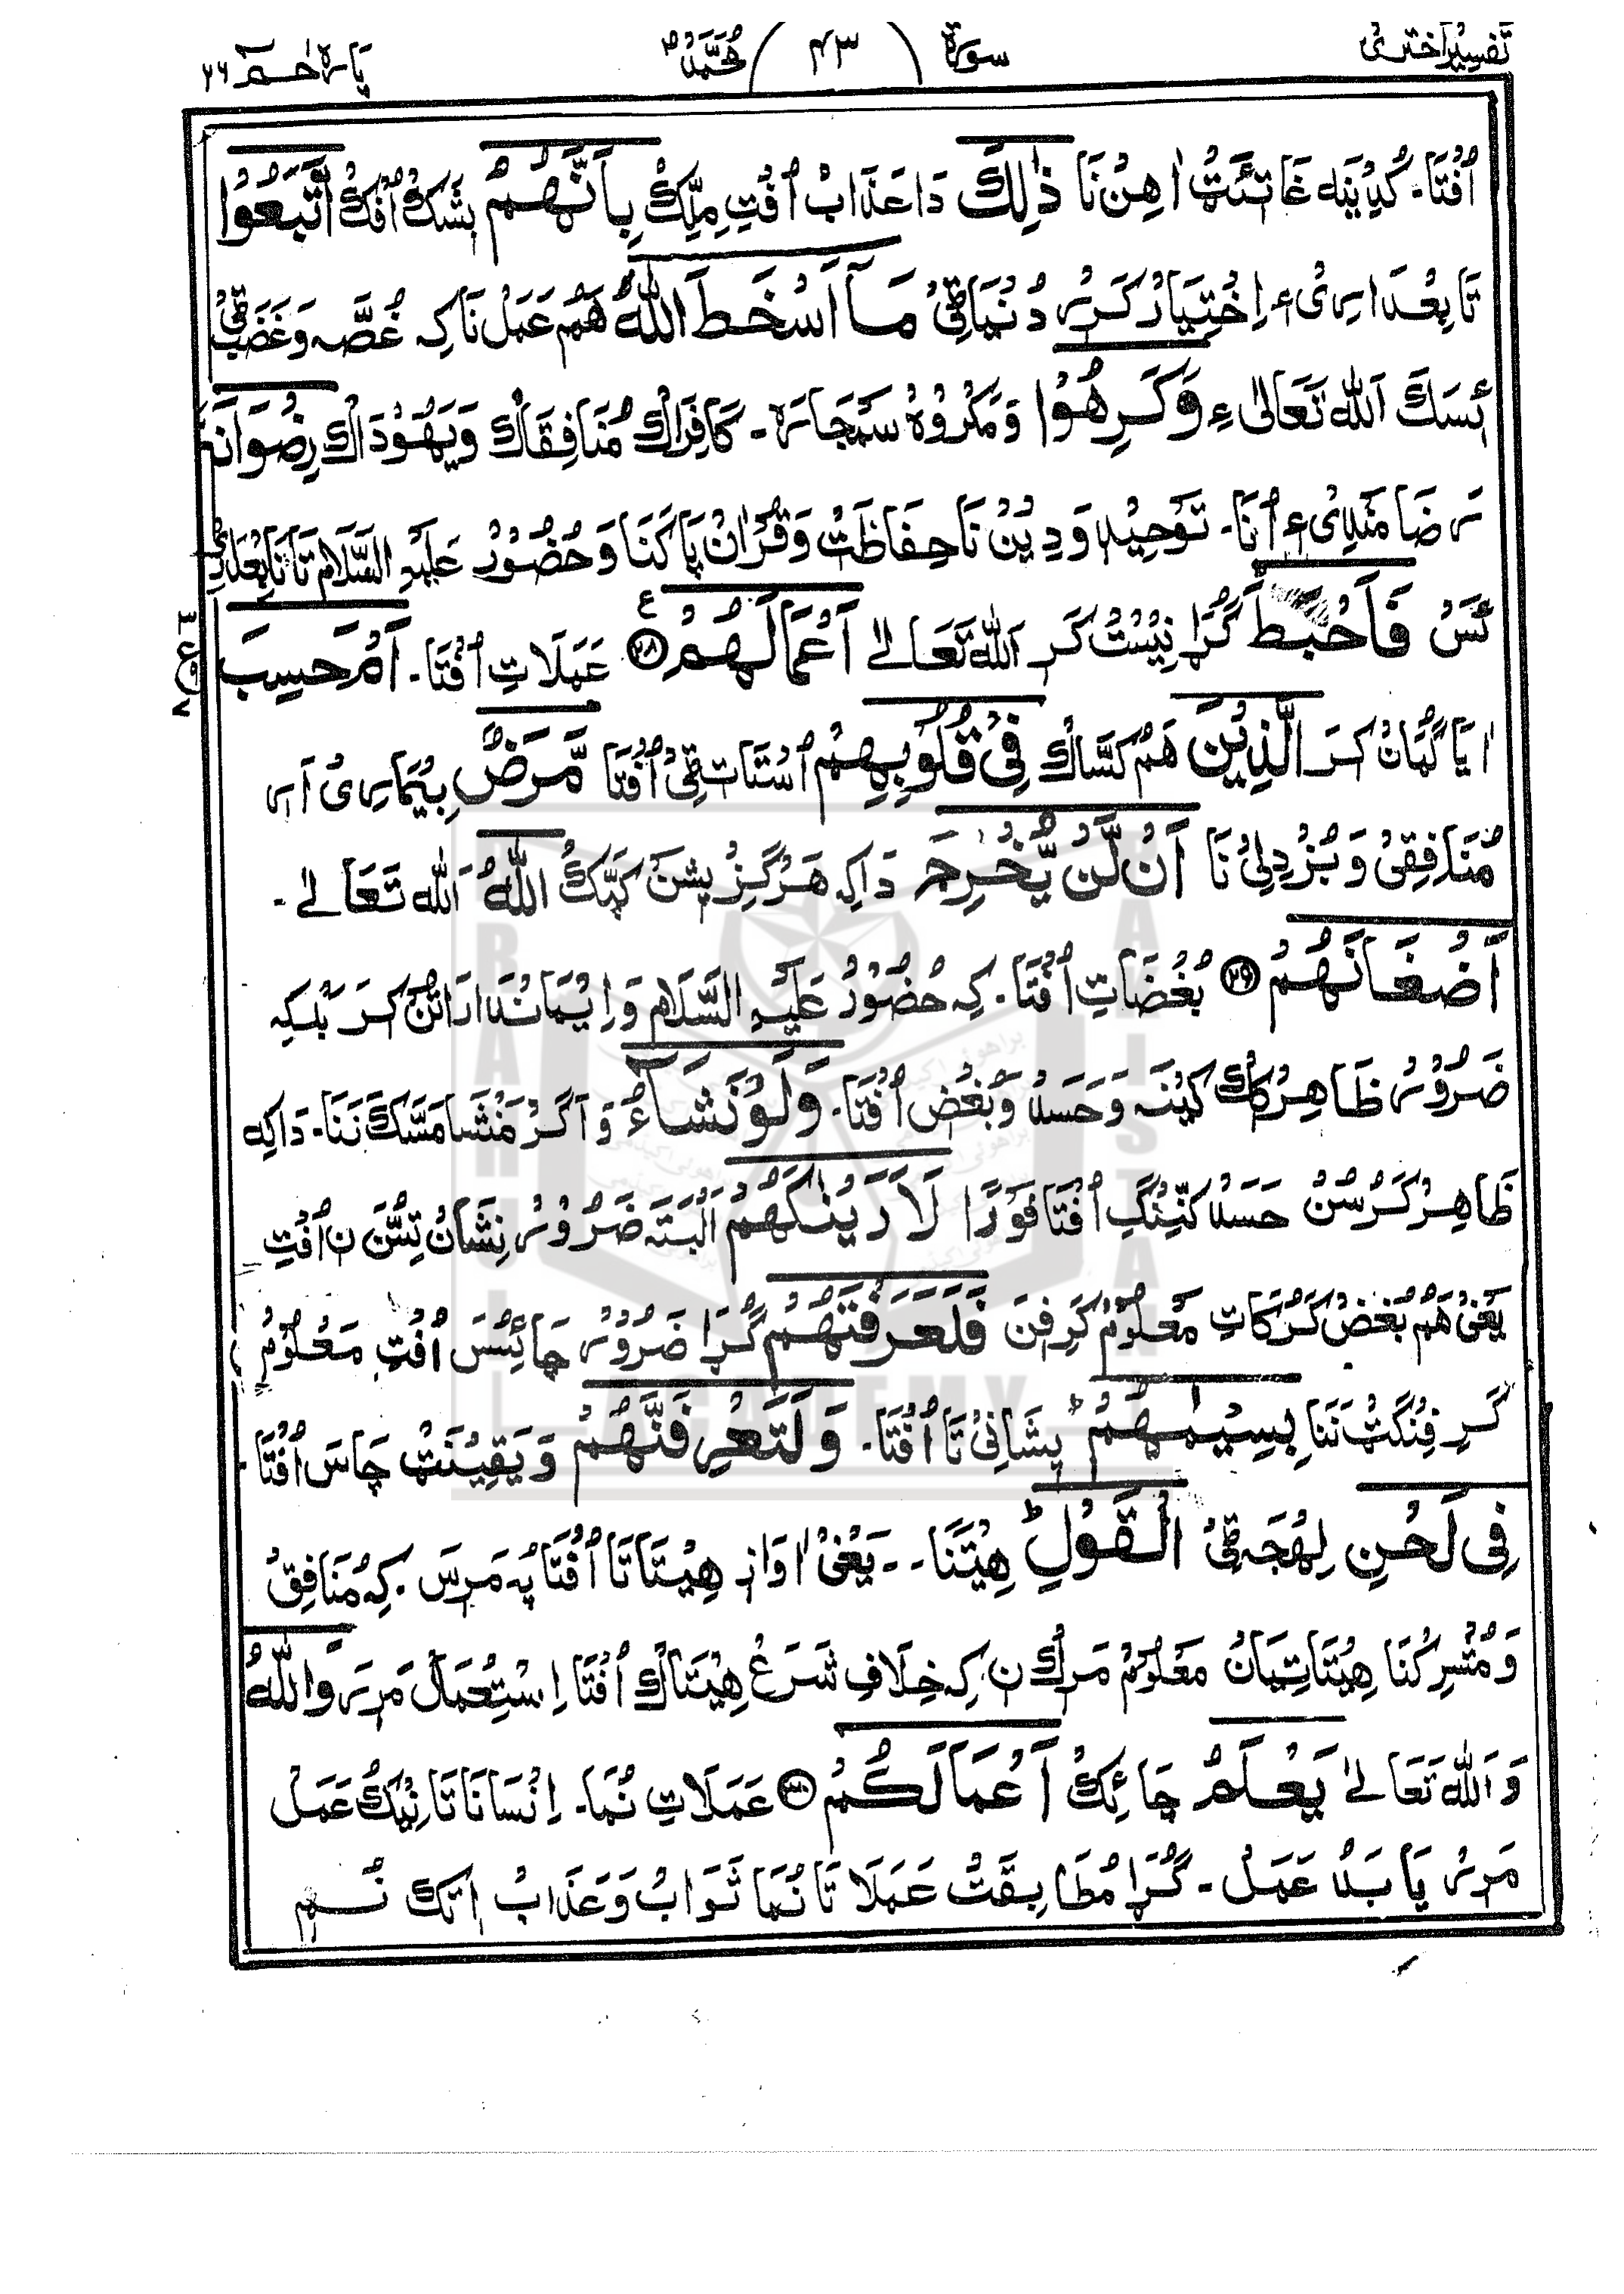 تفسیر اختری سورة ۴۳ محمد ص پاره حٰم ۲۶
اُفْتَا۔ کُہِ یَنِہ غَاتیَٹ اٰھِنْ نَا ذٰلِكَ دَا عَذَابْ اُفْتِ مِلِّكْ بِاَنَّهُمُ بَشَكْ اُفْكْ اتَّبَعُوْا
تَابِعْدَارِیْ ءِ اِخْتِیَارْ کَرِیْر دُنْیَاٹِیْ مَآ اَسْخَطَ اللّٰهَ هَمُ عَمَلْ نَا کِہ غُصَّہ وَ غَضَبْ ٹِیْ
ئِسَكَ اَللّٰه تَعَالٰی ءِ وَكَرِهُوْا وَ مَکْرُوْہ سَمْجَارَہ۔ کَافِرَاكْ مُنَافِقَاكْ وَ یَهُوْدَاكْ رِضْوَانَهٗ
رَضَامَنْدِیْ ءِ اُنَا۔ تَوْحِیْد وَ دِیْن نَا حِفَاظَتْ وَ قُرْاٰنْ پَاکْ نَا وَ حُضُوْرْ عَلَیْهِ السَّلَامْ نَا تَابِعْدَارِیْ
ئَسْ فَاَحْبَطَ گُڑَا نِیْسْتْ کَرِ اَللّٰه تَعَالٰے اَعْمَالَهُمْ ۲۸ ع عَمَلَاتِ اُفْتَا۔ اَمْ حَسِبَ
اٰیَا گُمَانْ کَرَ الَّذِیْنَ هَمُ کَسَّاكْ فِیْ قُلُوْبِهِمْ اُسْتَاتِ ٹِیْ اُفْتَا مَّرَضٌ بِیْمَارِیْ اَرِ
مُنَافِقِیْ وَ بُزْدِلِیْ نَا اَنْ لَّنْ یُّخْرِجَ دَاکِہ هَرْگِزْ پِشَنْ کَپَّكْ اللّٰهُ اَللّٰه تَعَالٰے۔
اَضْغَانَهُمْ ۲۹ بُغْضَاتِ اُفْتَا۔ کِہ حُضُوْرْ عَلَیْهِ السَّلَامْ وَ اِیْمَانْدَارَاتْن کَرَ بَلْکِہ
ضَرُوْر ظَاهِرْ کَاكْ کِیْنَہ وَ حَسَدْ وَ بُغْضِ اُفْتَا۔ وَلَوْ نَشَآءُ وَ اَگَرْ مَنْشَا مَسَّكْ نَنَا۔ دَاکِہ
ظَاهِرْ کَرْسُنْ حَسَدْ کِیْنَگِ اُفْتَا فَوْرًا لَاَرَیْنٰكَهُمْ اَلْبَتَّہ ضَرُوْر نِشَانْ تِسُّنَ نِ اُفْتِ
یَعْنِیْ هَمُ بُغْضْ کَرُكَاتِ مَعْلُوْمْ کَرِفِنَ فَلَعَرَفْتَهُمْ گُڑَا ضَرُوْر چَائِسَّسْ اُفْتِ مَعْلُوْمْ
کَرِ فِنْگَٹْ نَنَا بِسِیْمٰهُمْ ؕ پِشَانِیْ تَا اُفْتَا۔ وَلَتَعْرِفَنَّهُمْ وَ یَقِیْنَٹْ چَاسَ اُفْتَا
فِیْ لَحْنِ لِهْجَہ ٹِیْ الْقَوْلِ ؕ هِیْتَنَا۔۔ یَعْنِیْ اٰوَازْ هِیْتَاتَا اُفْتَا پِہ مَرِسَ۔ کِہ مُنَافِقْ
وَ مُشْرِکْنَا هِیْتَاتِیَانْ مَعْلُوْمْ مَرِكْ نِ کِہ خِلَافِ شَرَعْ هِیْتَاكْ اُفْتَا اِسْتِعْمَالْ مَرِیْرَ وَاللّٰهُ
وَ اَللّٰه تَعَالٰے یَعْلَمُ چَائِكْ اَعْمَالَكُمْ ۳۰ عَمَلَاتِ نُمَا۔ اِنْسَانَاتَا نِیْكْ عَمَلْ
مَرِیْر یَا بَدْ عَمَلْ۔ گُڑَا مُطَابِقَتْ عَمَلَاتَا نُمَا ثَوَابْ وَ عَذَابْ اِتِكْ نُم